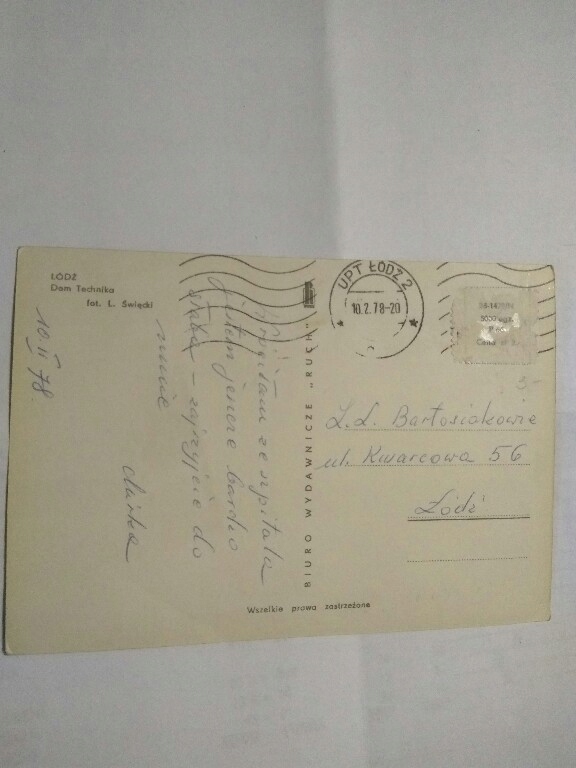 ŁÓDŹ
Dom Technika
fot. L. Święcki
10 II 78.
Wyszłam ze szpitala
jestem jeszcze bardzo
słaba – zajrzyjcie do
mnie
BIURO WYDAWNICZE „RUCH"
UPT ŁÓDŹ 2
10.2.78-20
5000 egz.
Cena zł
Bartosiakowie
ul. Kwarcowa 56
Łódź
Wszelkie prawa zastrzeżone